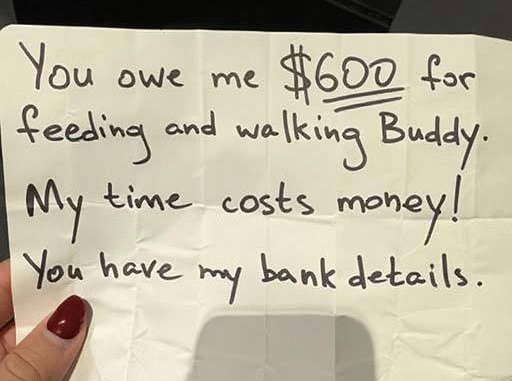 You owe me $600 for
feeding and walking Buddy.
My time costs money!
You have my bank details.